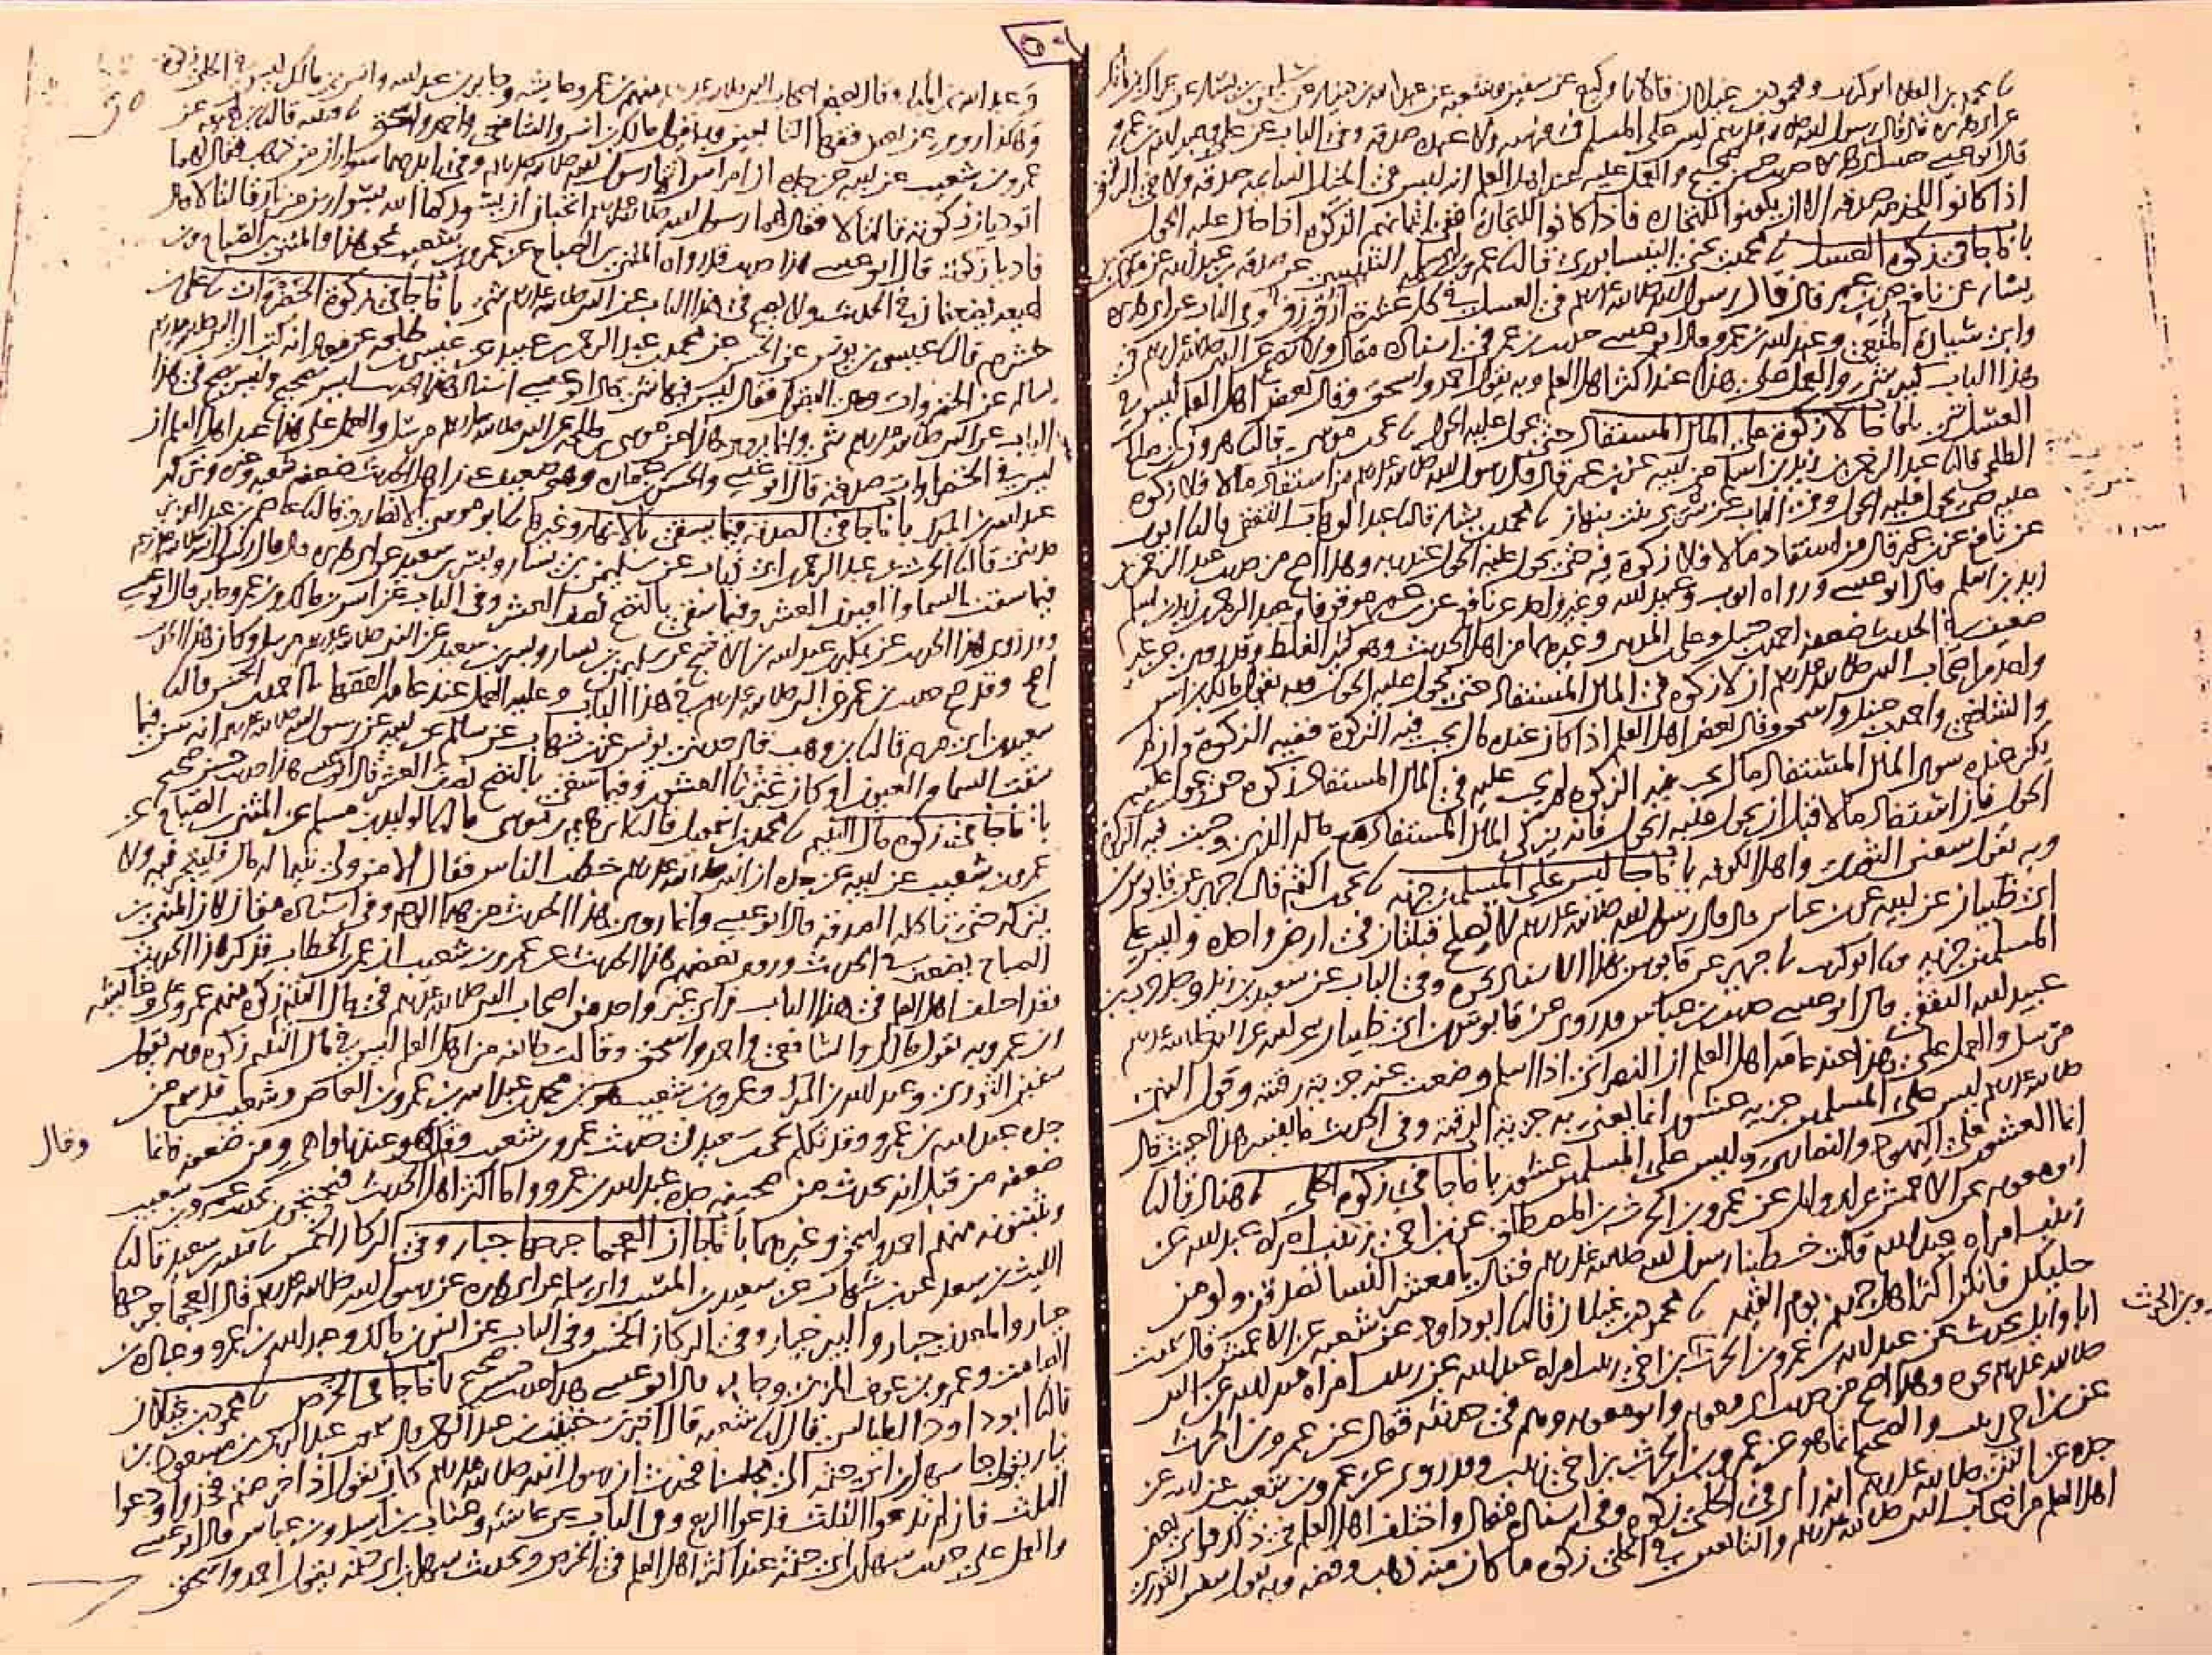 نا محمد بن العلا ابو كريب ومحمود بن غيلان قالا نا وكيع عن سفين وشعبه عن عبد الله بن دينار عن سليمن بن يسار عن عراك بن مالك
عن ابى هريره قال قال رسول الله صلى الله عليه وسلم ليس على المسلم فى فرسه ولا عبده صدقه وفى الباب عن على وعبد الله بن عمرو
قال ابو عيسى حديث ابى هريره حديث حسن صحيح والعمل عليه عند اهل العلم انه ليس فى الخيل السائمه صدقه ولا فى الرقيق
اذا كانوا للخدمه صدقه الا ان يكونوا للتجاره فاذا كانوا للتجاره ففى اثمانهم الزكوه اذا حال عليه الحول
باب ما جا فى زكوه العسل نا محمد بن يحيى النيسابورى قال نا عمرو بن ابى سلمه التنيسى عن صدقه بن عبد الله عن موسى بن
يسار عن نافع عن ابن عمر قال قال رسول الله صلى الله عليه وسلم فى العسل فى كل عشرة ازق زق وفى الباب عن ابى هريره
وابى سياره المتعى وعبد الله بن عمرو قال ابو عيسى حديث ابن عمر فى اسناده مقال ولا يصح عن النبى صلى الله عليه وسلم فى
هذا الباب كبير شى والعمل على هذا عند اكثر اهل العلم وبه يقول احمد واسحق وقال بعض اهل العلم ليس فى
العسل شى باب ما جا لا زكوه على المال المستفاد حتى يحول عليه الحول نا يحيى بن موسى قال نا هرون بن صالح
الطلحى قال نا عبد الرحمن بن زيد بن اسلم عن ابيه عن ابن عمر قال قال رسول الله صلى الله عليه وسلم من استفاد مالا فلا زكوه
عليه حتى يحول عليه الحول وفى الباب عن سرى بنت نبهان نا محمد بن بشار قال نا عبد الوهاب الثقفى قال نا ايوب
عن نافع عن ابن عمر قال من استفاد مالا فلا زكوة فيه حتى يحول عليه الحول عند ربه وهذا اصح من حديث عبد الرحمن بن
زيد بن اسلم قال ابو عيسى ورواه ايوب وعبيد الله وغير واحد عن نافع عن ابن عمر موقوفا وعبد الرحمن بن زيد بن اسلم
ضعيف فى الحديث ضعفه احمد بن حنبل وعلى بن المدينى وغيرهما من اهل الحديث وهو كثير الغلط وقد روى عن غير
واحد من اصحاب النبى صلى الله عليه وسلم ان لا زكوه فى المال المستفاد حتى يحول عليه الحول وبه يقول مالك بن انس
والشافعى واحمد بن حنبل واسحق وقال بعض اهل العلم اذا كان عنده مال تجب فيه الزكوة ففيه الزكوة وان لم
يكن عنده سوى المال المستفاد مال تجب فيه الزكوه لم يجب عليه فى المال المستفاد زكوه حتى يحول عليه
الحول فان استفاد مالا قبل ان يحول عليه الحول فانه يزكى المال المستفاد مع ماله الذى وجبت فيه الزكوه
وبه يقول سفين الثورى واهل الكوفه باب ما جا ليس على المسلمين جزيه نا يحيى بن اكثم قال نا جرير عن قابوس بن
ابى ظبيان عن ابيه عن ابن عباس قال قال رسول الله صلى الله عليه وسلم لا تصلح قبلتان فى ارض واحده وليس على
المسلمين جزيه نا ابو كريب نا جرير عن قابوس بهذا الاسناد نحوه وفى الباب عن سعيد بن زيد وجد حرب بن
عبيد الله الثقفى قال ابو عيسى حديث ابن عباس قد روى عن قابوس بن ابى ظبيان عن ابيه عن النبى صلى الله عليه وسلم
مرسل والعمل على هذا عند عامه اهل العلم ان النصرانى اذا اسلم وضعت عنه جزيه رقبته وقول النبى
صلى الله عليه وسلم ليس على المسلمين جزيه عشور انما يعنى به جزيه الرقبه وفى الحديث ما يفسر هذا حيث قال
انما العشور على اليهود والنصارى وليس على المسلمين عشور باب ما جا فى زكوه الحلى نا هناد قال نا
ابو معويه عن الاعمش عن ابى وائل عن عمرو بن الحرث بن المصطلق عن ابن اخى زينب امراه عبد الله عن
زينب امراه عبد الله قالت خطبنا رسول الله صلى الله عليه وسلم فقال يا معشر النسا تصدقن ولو من
حليكن فانكن اكثر اهل جهنم يوم القيمه نا محمود بن غيلان قال نا ابو داود عن شعبه عن الاعمش قال سمعت
ابا وايل يحدث عن عمرو بن الحرث بن اخى زينب امراه عبد الله عن زينب امراه عبد الله عن النبى
صلى الله عليه وسلم نحوه وهذا اصح من حديث ابى معويه وابو معويه وهم فى حديثه فقال عن عمرو بن الحرث
عن ابن اخى زينب والصحيح انما هو عن عمرو بن الحرث بن اخى زينب وقد روى عن عمرو بن شعيب عن ابيه عن
جده عن النبى صلى الله عليه وسلم انه راى فى الحلى زكوه وفى اسناده مقال واختلف اهل العلم فى ذلك فراى بعض
اهل العلم من اصحاب النبى صلى الله عليه وسلم والتابعين فى الحلى زكوه ما كان منه ذهب وفضه وبه يقول سفين الثورى
٥٠
وعبد الله بن المبارك وقال بعض اصحاب النبى صلى الله عليه وسلم منهم ابن عمر وعايشه وجابر بن عبد الله وانس بن مالك ليس فى الحلى زكوه
وهكذا روى عن بعض فقها التابعين وبه يقول مالك بن انس والشافعى واحمد واسحق نا قتيبه قال نا ابن لهيعه عن
عمرو بن شعيب عن ابيه عن جده ان امراتين اتتا رسول الله صلى الله عليه وسلم وفى ايديهما سواران من ذهب فقال لهما
اتوديان زكوته قالتا لا فقال لهما رسول الله صلى الله عليه وسلم اتحبان ان يسوركما الله بسوارين من نار قالتا لا قال
فاديا زكوته قال ابو عيسى هذا حديث قد رواه المثنى بن الصباح عن عمرو بن شعيب نحو هذا والمثنى بن الصباح وابن
لهيعه يضعفان فى الحديث ولا يصح فى هذا الباب عن النبى صلى الله عليه وسلم شى باب ما جا فى زكوة الخضروات نا على بن
خشرم قال نا عيسى بن يونس عن الحسن عن محمد بن عبد الرحمن بن عبيد عن عيسى بن طلحه عن معاذ انه كتب الى النبى صلى الله عليه وسلم
يساله عن الخضروات وهى البقول فقال ليس فيها شى قال ابو عيسى اسناد هذا الحديث ليس بصحيح وليس يصح فى هذا
الباب عن النبى صلى الله عليه وسلم شى وانما يروى هذا عن موسى بن طلحه عن النبى صلى الله عليه وسلم مرسل والعمل على هذا عند اهل العلم ان
ليس فى الخضروات صدقه قال ابو عيسى والحسن بن عماره وهو ضعيف عند اهل الحديث ضعفه شعبه وغيره وتركه
عبد الله بن المبارك باب ما جا فى الصدقه فيما يسقى بالانهار وغيرها نا ابو موسى الانصارى قال نا عاصم بن عبد العزيز
مدينى قال نا الحرث بن عبد الرحمن بن ابى ذباب عن سليمن بن يسار وبسر بن سعيد عن ابى هريره قال قال رسول الله صلى الله عليه وسلم
فيما سقت السما والعيون العشر وفيما سقى بالنضح نصف العشر وفى الباب عن انس بن مالك وابن عمر وجابر قال ابو عيسى
وقد روى هذا الحديث عن بكير بن عبد الله بن الاشج عن سليمن بن يسار وبسر بن سعيد عن النبى صلى الله عليه وسلم مرسل وكان هذا الحديث
اصح وقد صح حديث ابن عمر عن النبى صلى الله عليه وسلم فى هذا الباب وعليه العمل عند عامه الفقها نا احمد بن الحسن قال نا
سعيد بن ابى مريم قال نا ابن وهب قال حدثنى يونس عن ابن شهاب عن سالم عن ابيه عن رسول الله صلى الله عليه وسلم انه سن فيما
سقت السما والعيون او كان عثريا العشور وفيما سقى بالنضح نصف العشر قال ابو عيسى هذا حديث حسن صحيح
باب ما جا فى زكوه مال اليتيم نا محمد بن اسمعيل قال نا ابرهيم بن موسى قال نا الوليد بن مسلم عن المثنى بن الصباح عن
عمرو بن شعيب عن ابيه عن جده ان النبى صلى الله عليه وسلم خطب الناس فقال الا من ولى يتيما له مال فليتجر فيه ولا
يتركه حتى تاكله الصدقه قال ابو عيسى وانما روى هذا الحديث من هذا الوجه وفى اسناده مقال لان المثنى بن
الصباح يضعف فى الحديث وروى بعضهم هذا الحديث عن عمرو بن شعيب ان عمر بن الخطاب فذكر هذا الحديث
وقد اختلف اهل العلم فى هذا الباب فراى غير واحد من اصحاب النبى صلى الله عليه وسلم فى مال اليتيم زكوه منهم عمر وعلى وعايشه
وابن عمر وبه يقول مالك والشافعى واحمد واسحق وقالت طائفه من اهل العلم ليس فى مال اليتيم زكوه وبه يقول
سفين الثورى وعبد الله بن المبارك وعمرو بن شعيب هو ابن محمد بن عبد الله بن عمرو بن العاص وشعيب قد سمع من
جده عبد الله بن عمرو وقد تكلم يحيى بن سعيد فى حديث عمرو بن شعيب وقال هو عندنا واهى ومن ضعفه فانما
ضعفه من قبل انه يحدث من صحيفه جده عبد الله بن عمرو واما اكثر اهل الحديث فيحتجون بحديث عمرو بن شعيب
ويثبتونه منهم احمد واسحق وغيرهما باب ما جا ان العجما جرحها جبار وفى الركاز الخمس نا قتيبه بن سعيد قال نا
الليث بن سعد عن ابن شهاب عن سعيد بن المسيب وابى سلمه عن ابى هريره عن رسول الله صلى الله عليه وسلم قال العجما جرحها
جبار والمعدن جبار والبير جبار وفى الركاز الخمس وفى الباب عن انس بن مالك وعبد الله بن عمرو وعباده بن
الصامت وعمرو بن عوف المزنى وجابر قال ابو عيسى هذا حديث حسن صحيح باب ما جا فى الخرص نا محمود بن غيلان
قال نا ابو داود الطيالسى قال نا شعبه قال اخبرنى خبيب بن عبد الرحمن قال سمعت عبد الرحمن بن مسعود بن
نيار يقول جا سهل بن ابى حثمه الى مجلسنا فحدث ان رسول الله صلى الله عليه وسلم كان يقول اذا خرصتم فخذوا ودعوا
الثلث فان لم تدعوا الثلث فدعوا الربع وفى الباب عن عائشه وعتاب بن اسيد وابن عباس قال ابو عيسى
والعمل على حديث سهل بن ابى حثمه عند اكثر اهل العلم فى الخرص وبحديث سهل بن ابى حثمه يقول احمد واسحق
وقال